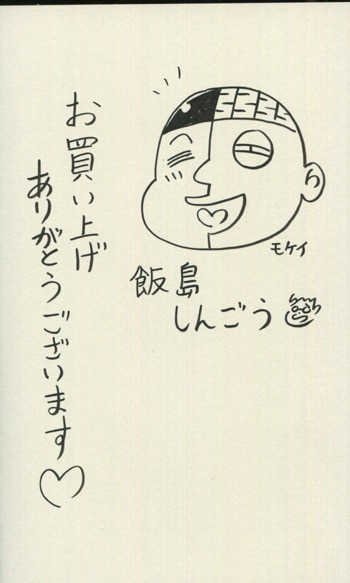 お買い上げ
ありがとうございます♡
モケイ
飯島
しんごう